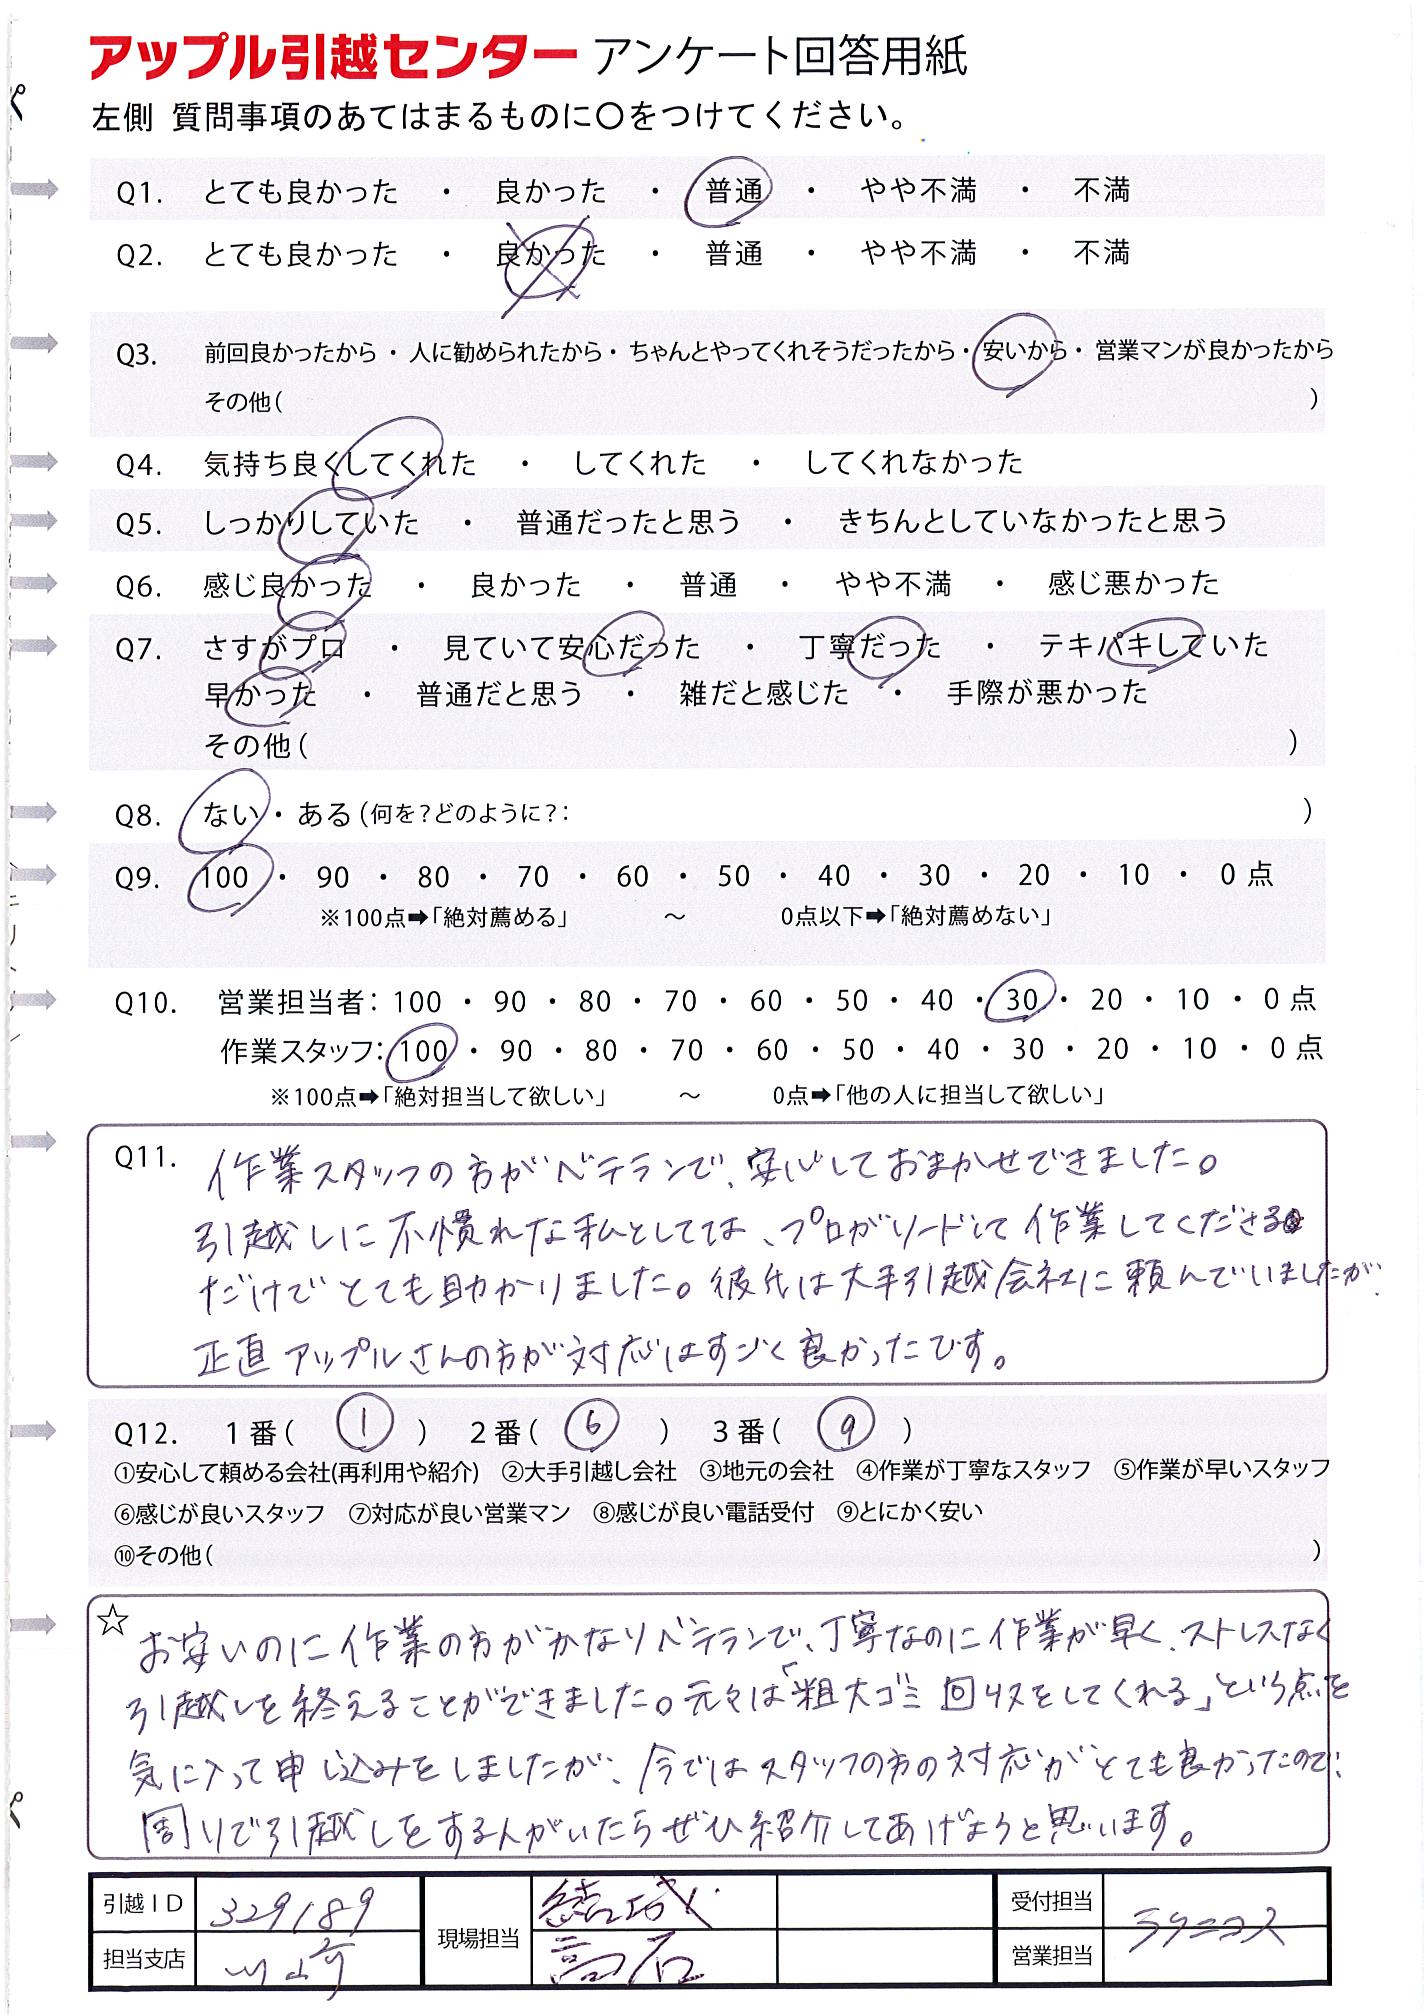 アップル引越センター アンケート回答用紙
左側 質問事項のあてはまるものに〇をつけてください。
Q1. とても良かった ・ 良かった ・ 普通 ・ やや不満 ・ 不満
Q2. とても良かった ・ 良かった ・ 普通 ・ やや不満 ・ 不満
Q3. 前回良かったから ・ 人に勧められたから ・ ちゃんとやってくれそうだったから ・ 安いから ・ 営業マンが良かったから
その他( )
Q4. 気持ち良くしてくれた ・ してくれた ・ してくれなかった
Q5. しっかりしていた ・ 普通だったと思う ・ きちんとしていなかったと思う
Q6. 感じ良かった ・ 良かった ・ 普通 ・ やや不満 ・ 感じ悪かった
Q7. さすがプロ ・ 見ていて安心だった ・ 丁寧だった ・ テキパキしていた
早かった ・ 普通だと思う ・ 雑だと感じた ・ 手際が悪かった
その他( )
Q8. ない ・ ある (何を?どのように?: )
Q9. 100 ・ 90 ・ 80 ・ 70 ・ 60 ・ 50 ・ 40 ・ 30 ・ 20 ・ 10 ・ 0 点
※100点➡「絶対薦める」 〜 0点以下➡「絶対薦めない」
Q10. 営業担当者: 100 ・ 90 ・ 80 ・ 70 ・ 60 ・ 50 ・ 40 ・ 30 ・ 20 ・ 10 ・ 0 点
作業スタッフ: 100 ・ 90 ・ 80 ・ 70 ・ 60 ・ 50 ・ 40 ・ 30 ・ 20 ・ 10 ・ 0 点
※100点➡「絶対担当して欲しい」 〜 0点➡「他の人に担当して欲しい」
Q11. 作業スタッフの方がベテランで、安心しておまかせできました。
引越しに不慣れな私としては、プロがリードして作業してくださる
だけでとても助かりました。彼氏は大手引越会社に頼んでいましたが、
正直アップルさんの方が対応はすごく良かったです。
Q12. 1番( 1 ) 2番( 6 ) 3番( 9 )
①安心して頼める会社(再利用や紹介) ②大手引越し会社 ③地元の会社 ④作業が丁寧なスタッフ ⑤作業が早いスタッフ
⑥感じが良いスタッフ ⑦対応が良い営業マン ⑧感じが良い電話受付 ⑨とにかく安い
⑩その他( )
☆ お安いのに作業の方がかなりベテランで、丁寧なのに作業が早く、ストレスなく
引越しを終えることができました。元々は「粗大ゴミ回収をしてくれる」という点を
気に入って申し込みをしましたが、今ではスタッフの方の対応がとても良かったので、
周りで引越しをする人がいたらぜひ紹介してあげようと思います。
引越ID 329189 現場担当 結城 受付担当 ラクニコス
担当支店 川崎 高石 営業担当